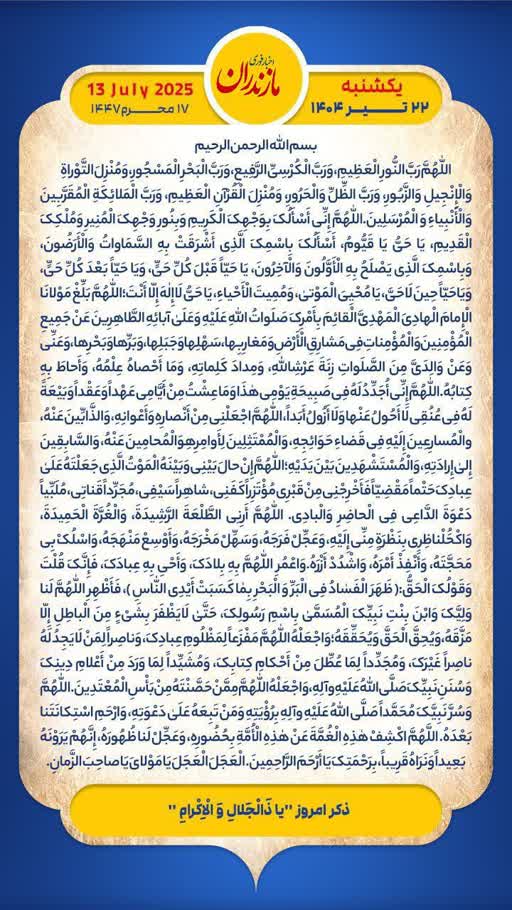 اخبار فوری
مازندران
یکشنبه
۲۲ تیر ۱۴۰۴
13 July 2025
۱۷ محرم ۱۴۴۷
بسم الله الرحمن الرحیم
اللهُمَّ رَبَّ النُّورِ الْعَظِیمِ، وَرَبَّ الْکُرْسِیِّ الرَّفِیعِ، وَرَبَّ الْبَحْرِ الْمَسْجُورِ، وَمُنْزِلَ التَّوْراةِ
وَالْإِنْجِیلِ وَالزَّبُورِ، وَرَبَّ الظِّلِّ وَالْحَرُورِ، وَمُنْزِلَ الْقُرْآنِ الْعَظِیمِ، وَرَبَّ الْمَلائِکَةِ الْمُقَرَّبِینَ
وَالْأَنْبِیاءِ وَ الْمُرْسَلِینَ. اللهُمَّ إِنِّی أَسْأَلُکَ بِوَجْهِکَ الْکَرِیمِ وَبِنُورِ وَجْهِکَ الْمُنِیرِ وَمُلْکِکَ
الْقَدِیمِ، یَا حَیُّ یَا قَیُّومُ، أَسْأَلُکَ بِاسْمِکَ الَّذِی أَشْرَقَتْ بِهِ السَّمَاوَاتُ وَالْأَرَضُونَ،
وَبِاسْمِکَ الَّذِی یَصْلَحُ بِهِ الْأَوَّلُونَ وَالْآخِرُونَ، یَا حَیّاً قَبْلَ کُلِّ حَیٍّ، وَیَا حَیّاً بَعْدَ کُلِّ حَیٍّ،
وَیَا حَیّاً حِینَ لَا حَیَّ، یَا مُحْیِیَ الْمَوْتیٰ، وَمُمِیتَ الْأَحْیاءِ، یَا حَیُّ لَا إِلهَ إِلّا أَنْتَ؛ اللهُمَّ بَلِّغْ مَوْلانَا
الْإِمامَ الْهادِیَ الْمَهْدِیَّ الْقائِمَ بِأَمْرِکَ صَلَواتُ اللهِ عَلَیْهِ وَعَلَیٰ آبائِهِ الطَّاهِرِینَ عَنْ جَمِیعِ
الْمُؤْمِنِینَ وَالْمُؤْمِناتِ فِی مَشارِقِ الْأَرْضِ وَمَغارِبِها، سَهْلِها وَجَبَلِها، وَبَرِّها وَبَحْرِها، وَعَنِّی
وَعَنْ وَالِدَیَّ مِنَ الصَّلَواتِ زِنَةَ عَرْشِ اللهِ، وَمِدادَ کَلِماتِهِ، وَمَا أَحْصاهُ عِلْمُهُ، وَأَحاطَ بِهِ
کِتابُهُ. اللهُمَّ إِنِّی أُجَدِّدُ لَهُ فِی صَبِیحَةِ یَوْمِی هٰذا وَمَا عِشْتُ مِنْ أَیَّامِی عَهْداً وَعَقْداً وَبَیْعَةً
لَهُ فِی عُنُقِی لَا أَحُولُ عَنْها وَلَا أَزُولُ أَبَداً، اللهُمَّ اجْعَلْنِی مِنْ أَنْصارِهِ وَأَعْوانِهِ، وَالذَّابِّینَ عَنْهُ،
وَالْمُسارِعِینَ إِلَیْهِ فِی قَضاءِ حَوائِجِهِ، وَالْمُمْتَثِلِینَ لِأَوامِرِهِ وَالْمُحامِینَ عَنْهُ، وَالسَّابِقِینَ
إِلیٰ إِرادَتِهِ، وَالْمُسْتَشْهَدِینَ بَیْنَ یَدَیْهِ؛ اللهُمَّ إِنْ حالَ بَیْنِی وَبَیْنَهُ الْمَوْتُ الَّذِی جَعَلْتَهُ عَلَیٰ
عِبادِکَ حَتْماً مَقْضِیّاً فَأَخْرِجْنِی مِنْ قَبْرِی مُؤْتَزِراً کَفَنِی، شاهِراً سَیْفِی، مُجَرِّداً قَناتِی، مُلَبِّیاً
دَعْوَةَ الدَّاعِی فِی الْحاضِرِ وَالْبادِی. اللهُمَّ أَرِنِی الطَّلْعَةَ الرَّشِیدَةَ، وَالْغُرَّةَ الْحَمِیدَةَ،
وَاکْحُلْ ناظِرِی بِنَظْرَةٍ مِنِّی إِلَیْهِ، وَعَجِّلْ فَرَجَهُ، وَسَهِّلْ مَخْرَجَهُ، وَأَوْسِعْ مَنْهَجَهُ، وَاسْلُکْ بِی
مَحَجَّتَهُ، وَأَنْفِذْ أَمْرَهُ، وَاشْدُدْ أَزْرَهُ. وَاعْمُرِ اللهُمَّ بِهِ بِلادَکَ، وَأَحْیِ بِهِ عِبادَکَ، فَإِنَّکَ قُلْتَ
وَقَوْلُکَ الْحَقُّ: (ظَهَرَ الْفَسَادُ فِی الْبَرِّ وَ الْبَحْرِ بِمَا کَسَبَتْ أَیْدِی النَّاسِ)، فَأَظْهِرِ اللهُمَّ لَنا
وَلِیَّکَ وَابْنَ بِنْتِ نَبِیِّکَ الْمُسَمَّیٰ بِاسْمِ رَسُولِکَ، حَتَّیٰ لَا یَظْفَرَ بِشَیْءٍ مِنَ الْباطِلِ إِلّا
مَزَّقَهُ، وَیُحِقَّ الْحَقَّ وَیُحَقِّقَهُ؛ وَاجْعَلْهُ اللهُمَّ مَفْزَعاً لِمَظْلُومِ عِبادِکَ، وَناصِراً لِمَنْ لَا یَجِدُ لَهُ
ناصِراً غَیْرَکَ، وَمُجَدِّداً لِمَا عُطِّلَ مِنْ أَحْکامِ کِتابِکَ، وَمُشَیِّداً لِمَا وَرَدَ مِنْ أَعْلامِ دِینِکَ
وَسُنَنِ نَبِیِّکَ صَلَّی اللهُ عَلَیْهِ وَآلِهِ، وَاجْعَلْهُ اللهُمَّ مِمَّنْ حَصَّنْتَهُ مِنْ بَأْسِ الْمُعْتَدِینَ. اللهُمَّ
وَسُرَّ نَبِیَّکَ مُحَمَّداً صَلَّی اللهُ عَلَیْهِ وَآلِهِ بِرُؤْیَتِهِ وَمَنْ تَبِعَهُ عَلَیٰ دَعْوَتِهِ، وَارْحَمِ اسْتِکانَتَنا
بَعْدَهُ. اللهُمَّ اکْشِفْ هٰذِهِ الْغُمَّةَ عَنْ هٰذِهِ الْأُمَّةِ بِحُضُورِهِ، وَعَجِّلْ لَنا ظُهُورَهُ، إِنَّهُمْ یَرَوْنَهُ
بَعِیداً وَنَرَاهُ قَرِیباً، بِرَحْمَتِکَ یَا أَرْحَمَ الرَّاحِمِینَ. الْعَجَلَ الْعَجَلَ یَا مَوْلایَ یَا صاحِبَ الزَّمانِ.
ذکر امروز "یا ذَالْجَلالِ وَ الْاِکْرامِ"